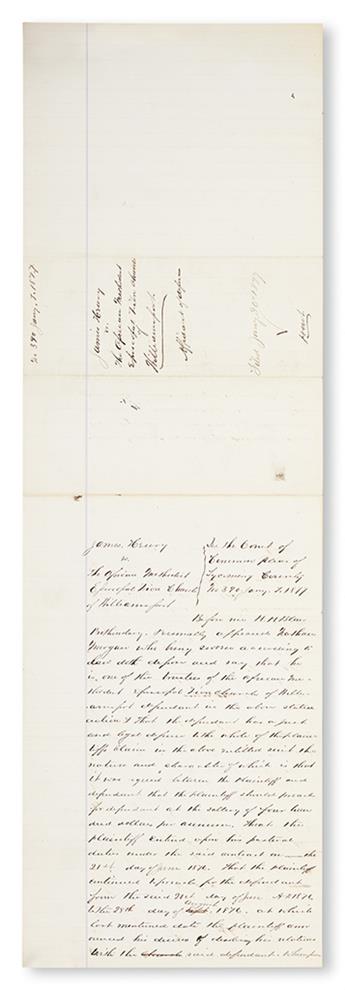 No 390 Jany. T. 1877
James Henry
vs.
The African Methodist
Episcopal Zion Church
of
Williamsport
Affidavit of defense
Filed Jany 30 1877
James Henry
vs.
The African Methodist
Episcopal Zion Church
of Williamsport
In the Court of
Common pleas of
Lycoming County
No 390 Jany. T. 1877
Before me H H
Prothonotary. Personally appeared
Morgan who being sworn according to
law doth depose and say that he
is one of the trustees of the African Me-
thodist Episcopal Zion Church of Willi-
amsport defendant in the above stated
action & That the defendant has a just
and legal defense to the whole of the plain-
tiffs claim in the above entitled suit the
nature and character of which is that
it was agreed between the plaintiff and
defendant that the plaintiff should preach
for defendant at the sallery of four hun
dred dollars per annum. That the
plaintiff entered upon his pastoral
duties under the said contract on the
21st day of June 1876. That the plaintiff
continued to preach for the defendant
from the said 21st day of June A.D 1876
to the 28th day of August 1876. at which
last mentioned date the plaintiff ann
ounced his desires of his relations
with the church said defendant.